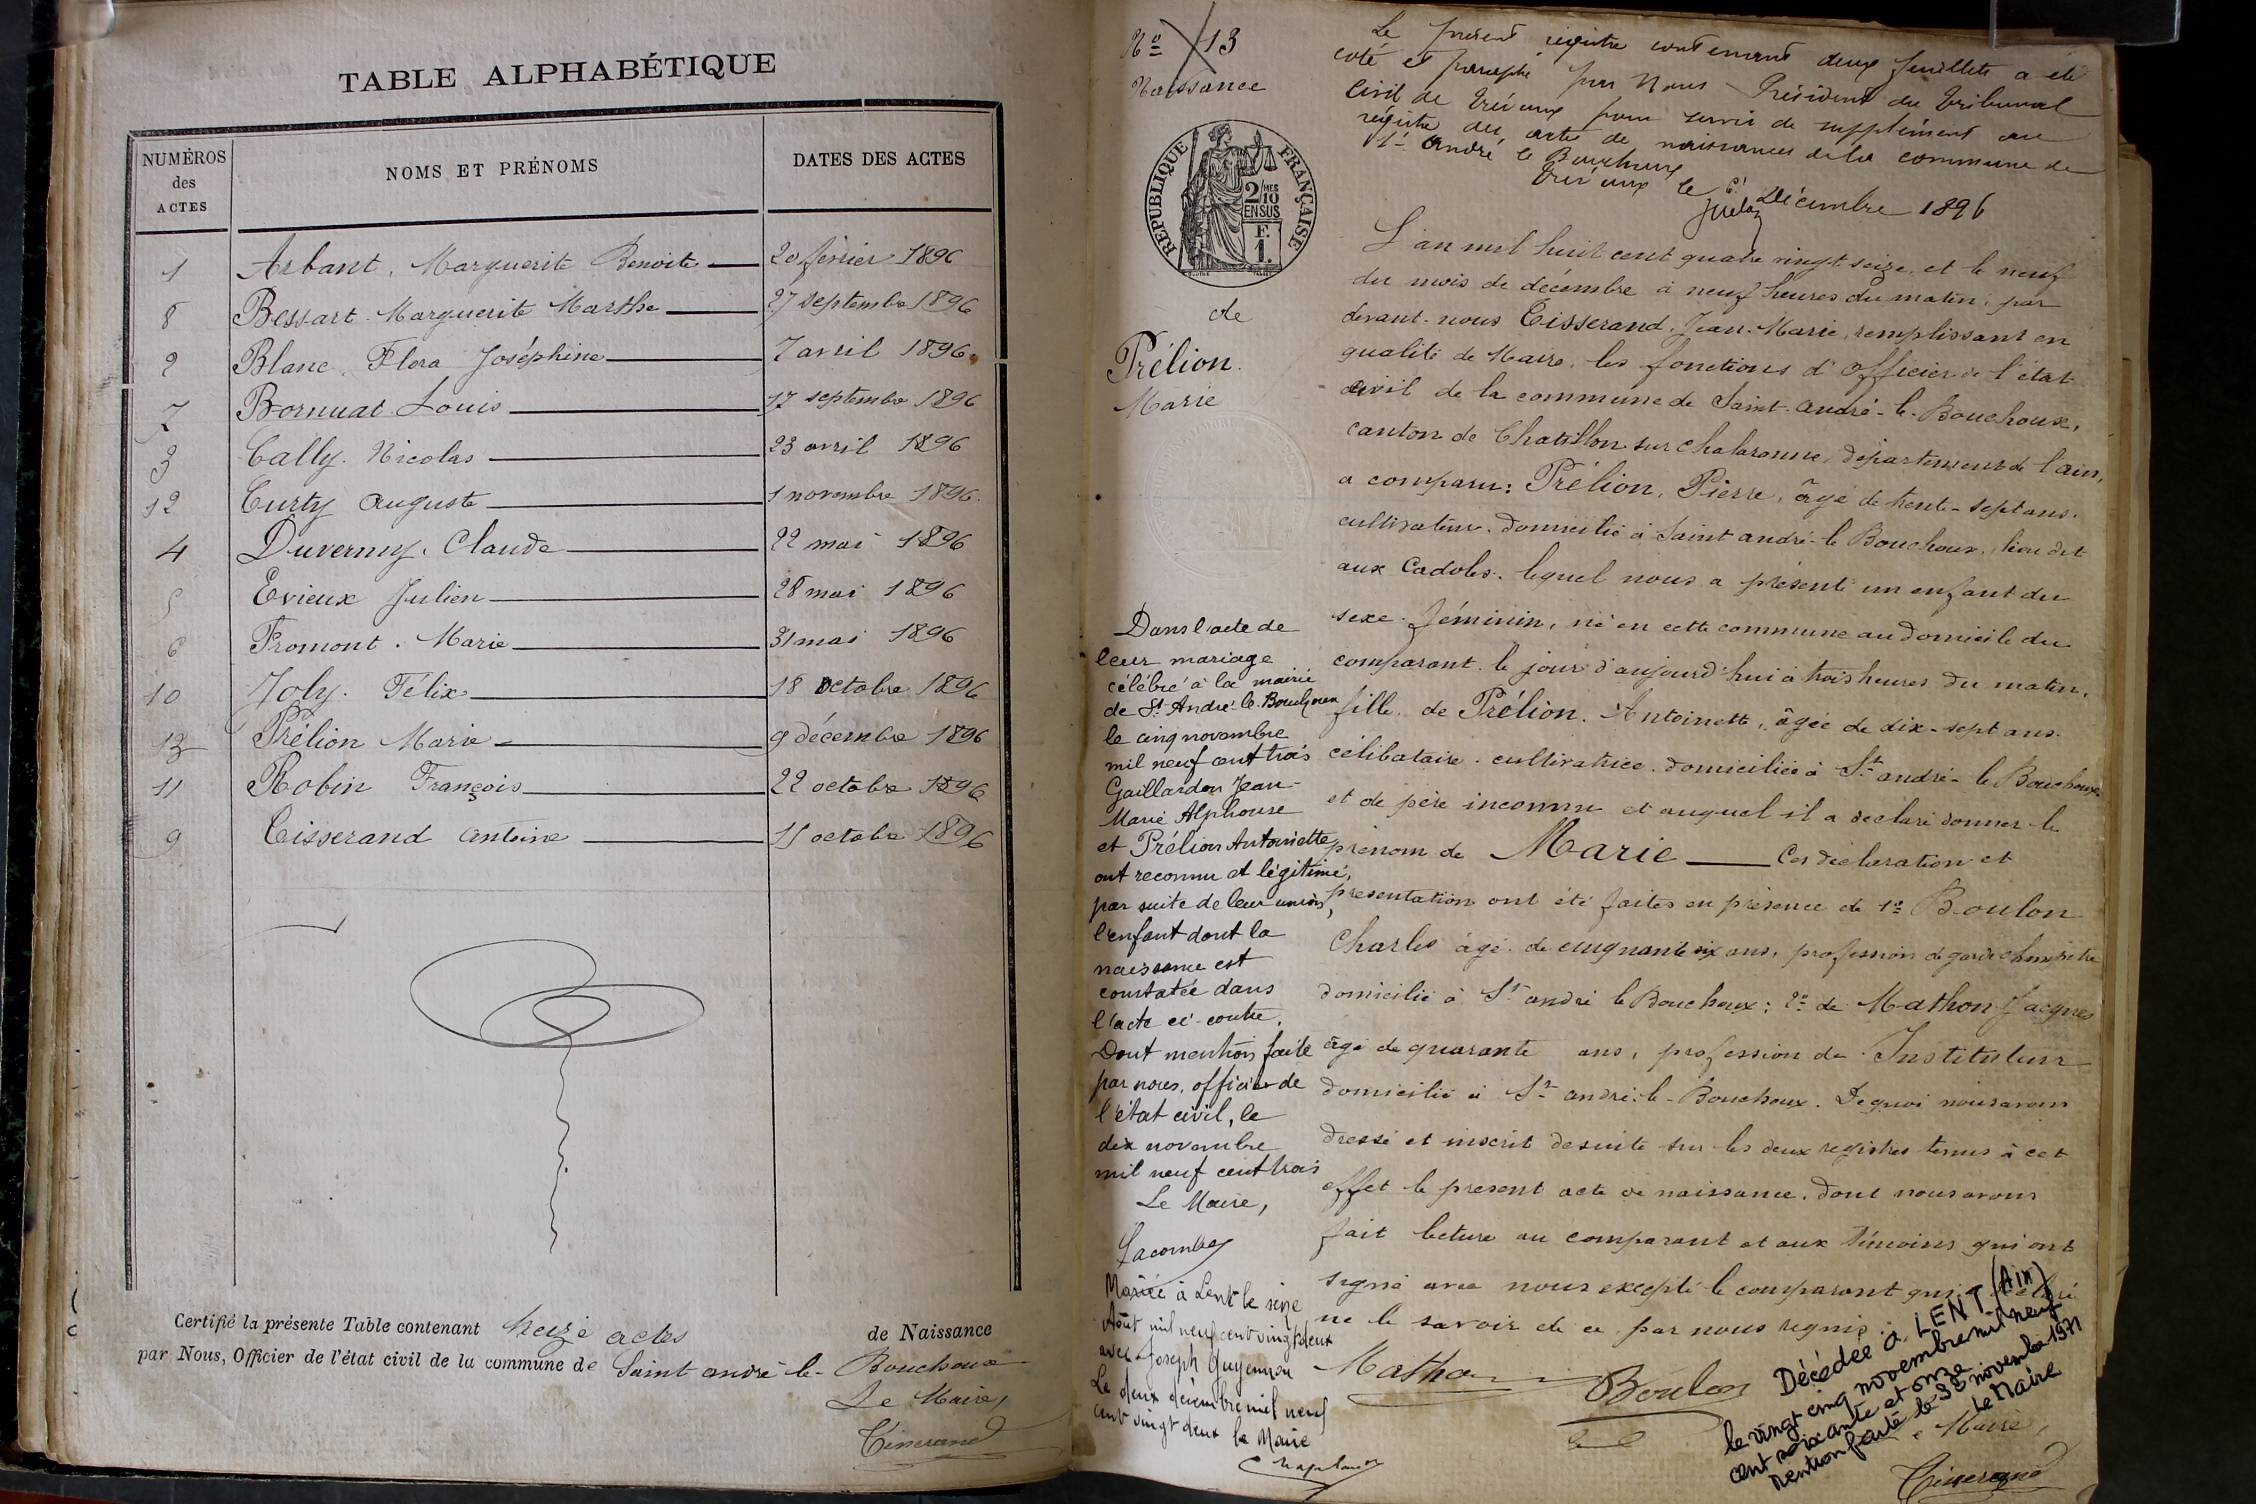 TABLE ALPHABÉTIQUE
NUMÉROS des ACTES
NOMS ET PRÉNOMS
DATES DES ACTES
1 Arbant, Marguerite Benoite 20 février 1896
8 Bessart Marguerite Marthe 27 septembre 1896
2 Blanc, Flora Joséphine 7 avril 1896
7 Bornuat Louis 17 septembre 1896
3 Cally. Nicolas 23 avril 1896
12 Curty Auguste 1 novembre 1896.
4 Duverny. Claude 22 mai 1896
5 Evieux Julien 28 mai 1896
6 Fromont. Marie 31 mai 1896
10 Joly. Félix 18 octobre 1896
13 Prélion Marie 9 décembre 1896
11 Robin François 22 octobre 1896
9 Tisserand Antoine 11 octobre 1896
Certifié la présente Table contenant treize actes de Naissance
par Nous, Officier de l'état civil de la commune de Saint andré-le-Bouchoux
Le Maire,
Tisserand
No 13
Naissance
RÉPUBLIQUE FRANÇAISE
2/10 MES
EN SUS
F.
1.
de
Prélion.
Marie
Dans l'acte de
leur mariage
célébré à la mairie
de St André-le-Bouchoux
le cinq novembre
mil neuf cent trois
Gaillardon Jean-
Marie Alphonse
et Prélion Antoinette
ont reconnu et légitimé,
par suite de leur union,
l'enfant dont la
naissance est
constatée dans
l'acte ci-contre.
Dont mention faite
par nous, officier de
l'état civil, le
dix novembre
mil neuf cent trois
Le Maire,
Lacombe
Mariée à Lent le seize
Août mil neuf cent vingt deux
avec Joseph Guyennon
Le deux décembre mil neuf
cent vingt deux le Maire
Le présent registre contenant deux feuillets a été
coté et paraphé par Nous Président du tribunal
Civil de Trévoux pour servir de supplément au
registre des actes de naissances de la commune de
St andré le Bouchoux
Trévoux le 6 Décembre 1896
L'an mil huit cent quatre vingt seize, et le neuf
du mois de décembre à neuf heures du matin, par
devant-nous Tisserand. Jean-Marie, remplissant en
qualité de Maire, les fonctions d'Officier de l'état
civil de la commune de Saint-André-le-Bouchoux,
canton de Chatillon sur Chalaronne, département de l'ain,
a comparu: Prélion, Pierre, âgé de trente-sept ans.
cultivateur. domicilié à Saint andré-le Bouchoux, lieu dit
aux Cadoles. lequel nous a présenté un enfant du
sexe féminin, né en cette commune au domicile du
comparant. le jour d'aujourd'hui à trois heures du matin,
fille de Prélion. Antoinette, âgée de dix-sept ans.
célibataire. cultivatrice. domiciliée à St andré-le Bouchoux
et de père inconnu et auquel il a déclaré donner le
prénom de Marie Ces déclaration et
présentation ont été faites en présence de 1o Boulon
Charles âgé de cinquante six ans, profession de garde champêtre
domicilié à St andré le Bouchoux; 2o de Mathon Jacques
âgé de quarante ans, profession de Instituteur
domicilié à St andré-le-Bouchoux. De quoi nous avons
dressé et inscrit de suite sur les deux registres tenus à cet
effet le présent acte de naissance. dont nous avons
fait lecture au comparant et aux témoins qui ont
signé avec nous excepté le comparant qui
ne le savoir de ce par nous requis
Mathon
Boulon
Décédée à LENT (Ain)
le vingt cinq novembre mil neuf
cent soixante et onze
Mention faite le novembre 1971
Le Maire
Maire,
Tisserand